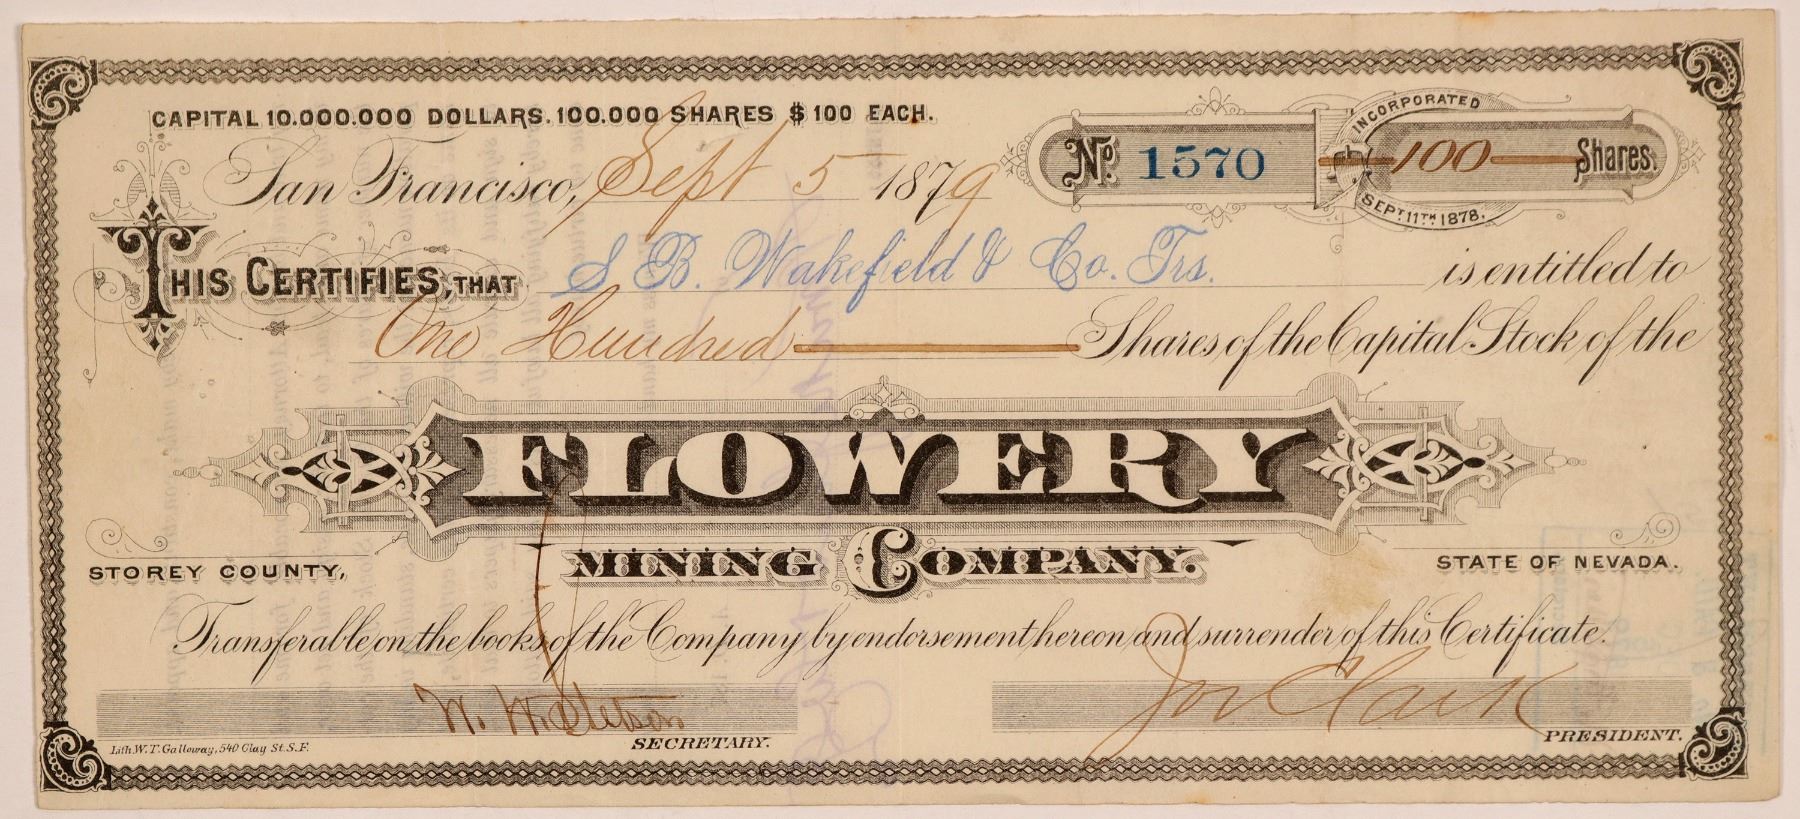 CAPITAL 10.000.000 DOLLARS. 100.000 SHARES $100 EACH.
INCORPORATED
SEPT 11TH 1878.
San Francisco, Sept 5 1879
No. 1570
100 Shares.
THIS CERTIFIES, THAT S B. Wakefield & Co. Trs. is entitled to
One Hundred Shares of the Capital Stock of the
FLOWERY
MINING COMPANY.
STOREY COUNTY,
STATE OF NEVADA.
Transferable on the books of the Company by endorsement hereon and surrender of this Certificate.
W. W. Stetson
Jos Clark
Lith. W. T. Galloway, 540 Clay St. S.F.
SECRETARY.
PRESIDENT.